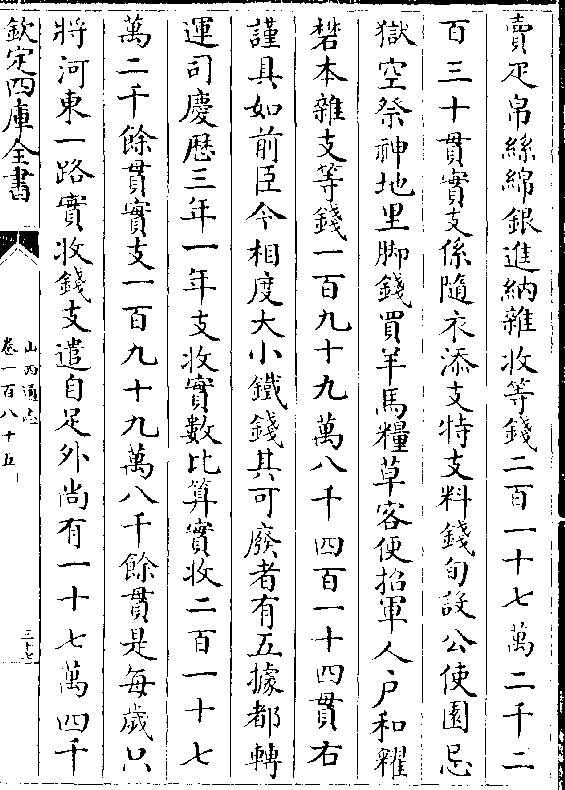 賣疋帛絲綿銀進納雜收等錢二百一十七萬二千二
百三十貫實支係隨衣添支特支料錢旬設公使國忌
獄空祭神地里脚錢買羊馬糧草客便招軍人戶和糴
礬本雜支等錢一百九十九萬八千四百一十四貫右
謹具如前臣今相度大小鐵錢其可廢者有五據都轉
運司慶歷三年一年支收實數比算實收二百一十七
萬二千餘貫實支一百九十九萬八千餘貫是每歲只
將河東一路實收錢支遣自足外尚有一十七萬四千
欽定四庫全書
山西通志
卷一百八十五
三七